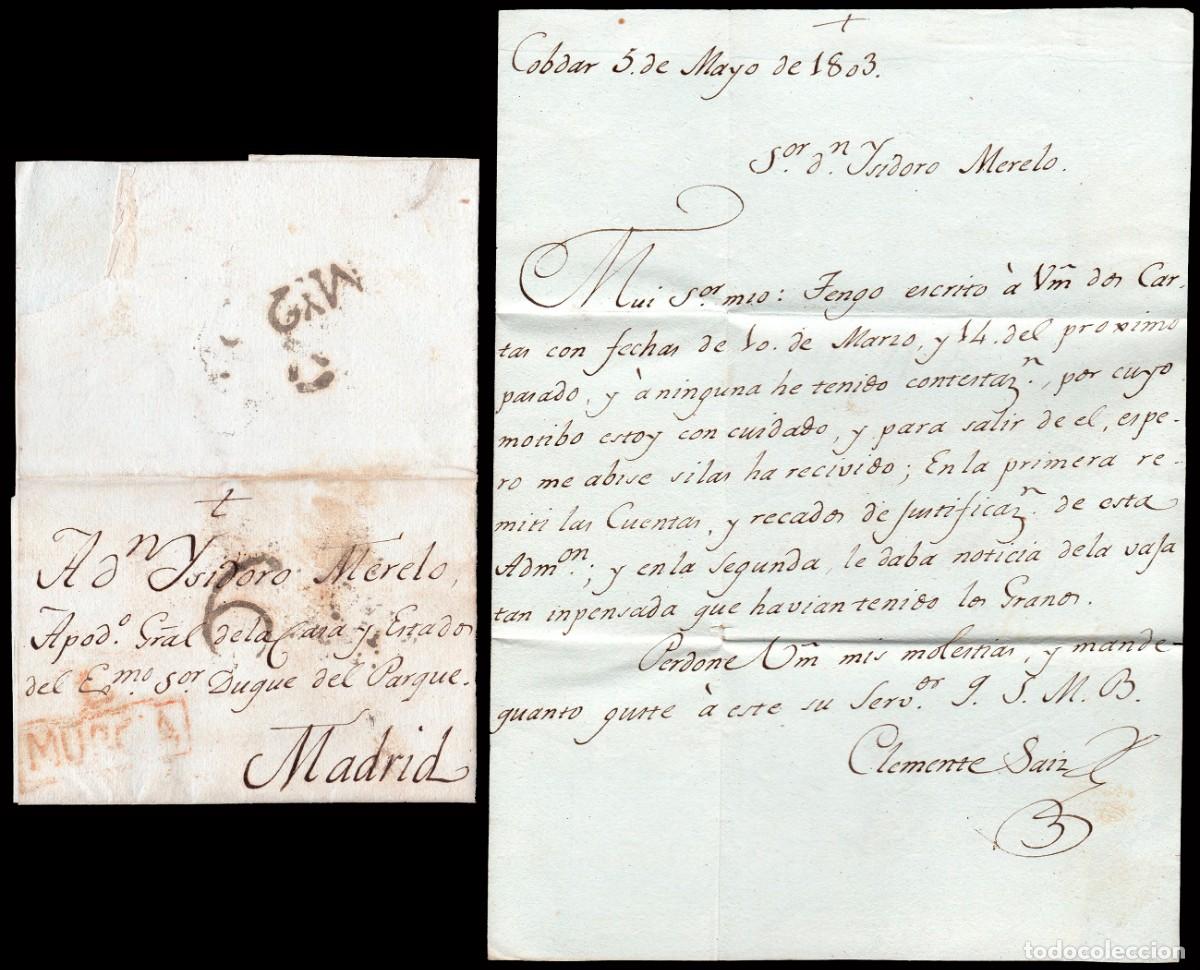 MY2
+
A dⁿ Ysidoro Merelo,
6
Apodº. Gral de la Casa y Estados
del Eᵐº. Sºʳ. Duque del Parque.
MURCIA
Madrid
+
Cobdar 5. de Mayo de 1803.
Sºʳ. dⁿ. Ysidoro Merelo.
Mui Sºʳ mio: Tengo escrito à Vm̃ dos Car-
tas con fechas de 10. de Marzo, y 14. del proximo
pasado, y à ninguna he tenido contestazⁿ., por cuyo
motibo estoy con cuidado, y para salir de el, espe-
ro me abise si las ha recivido; En la primera re-
miti las Cuentas, y recados de justificazⁿ. de esta
Admºⁿ.; y en la segunda, le daba noticia de la vaja
tan inpensada que havian tenido los Granos.
Perdone Vm̃ mis molestias, y mande
quanto guste à este su Servᵒʳ. q. S. M. B.
Clemente Saiz
todocoleccion